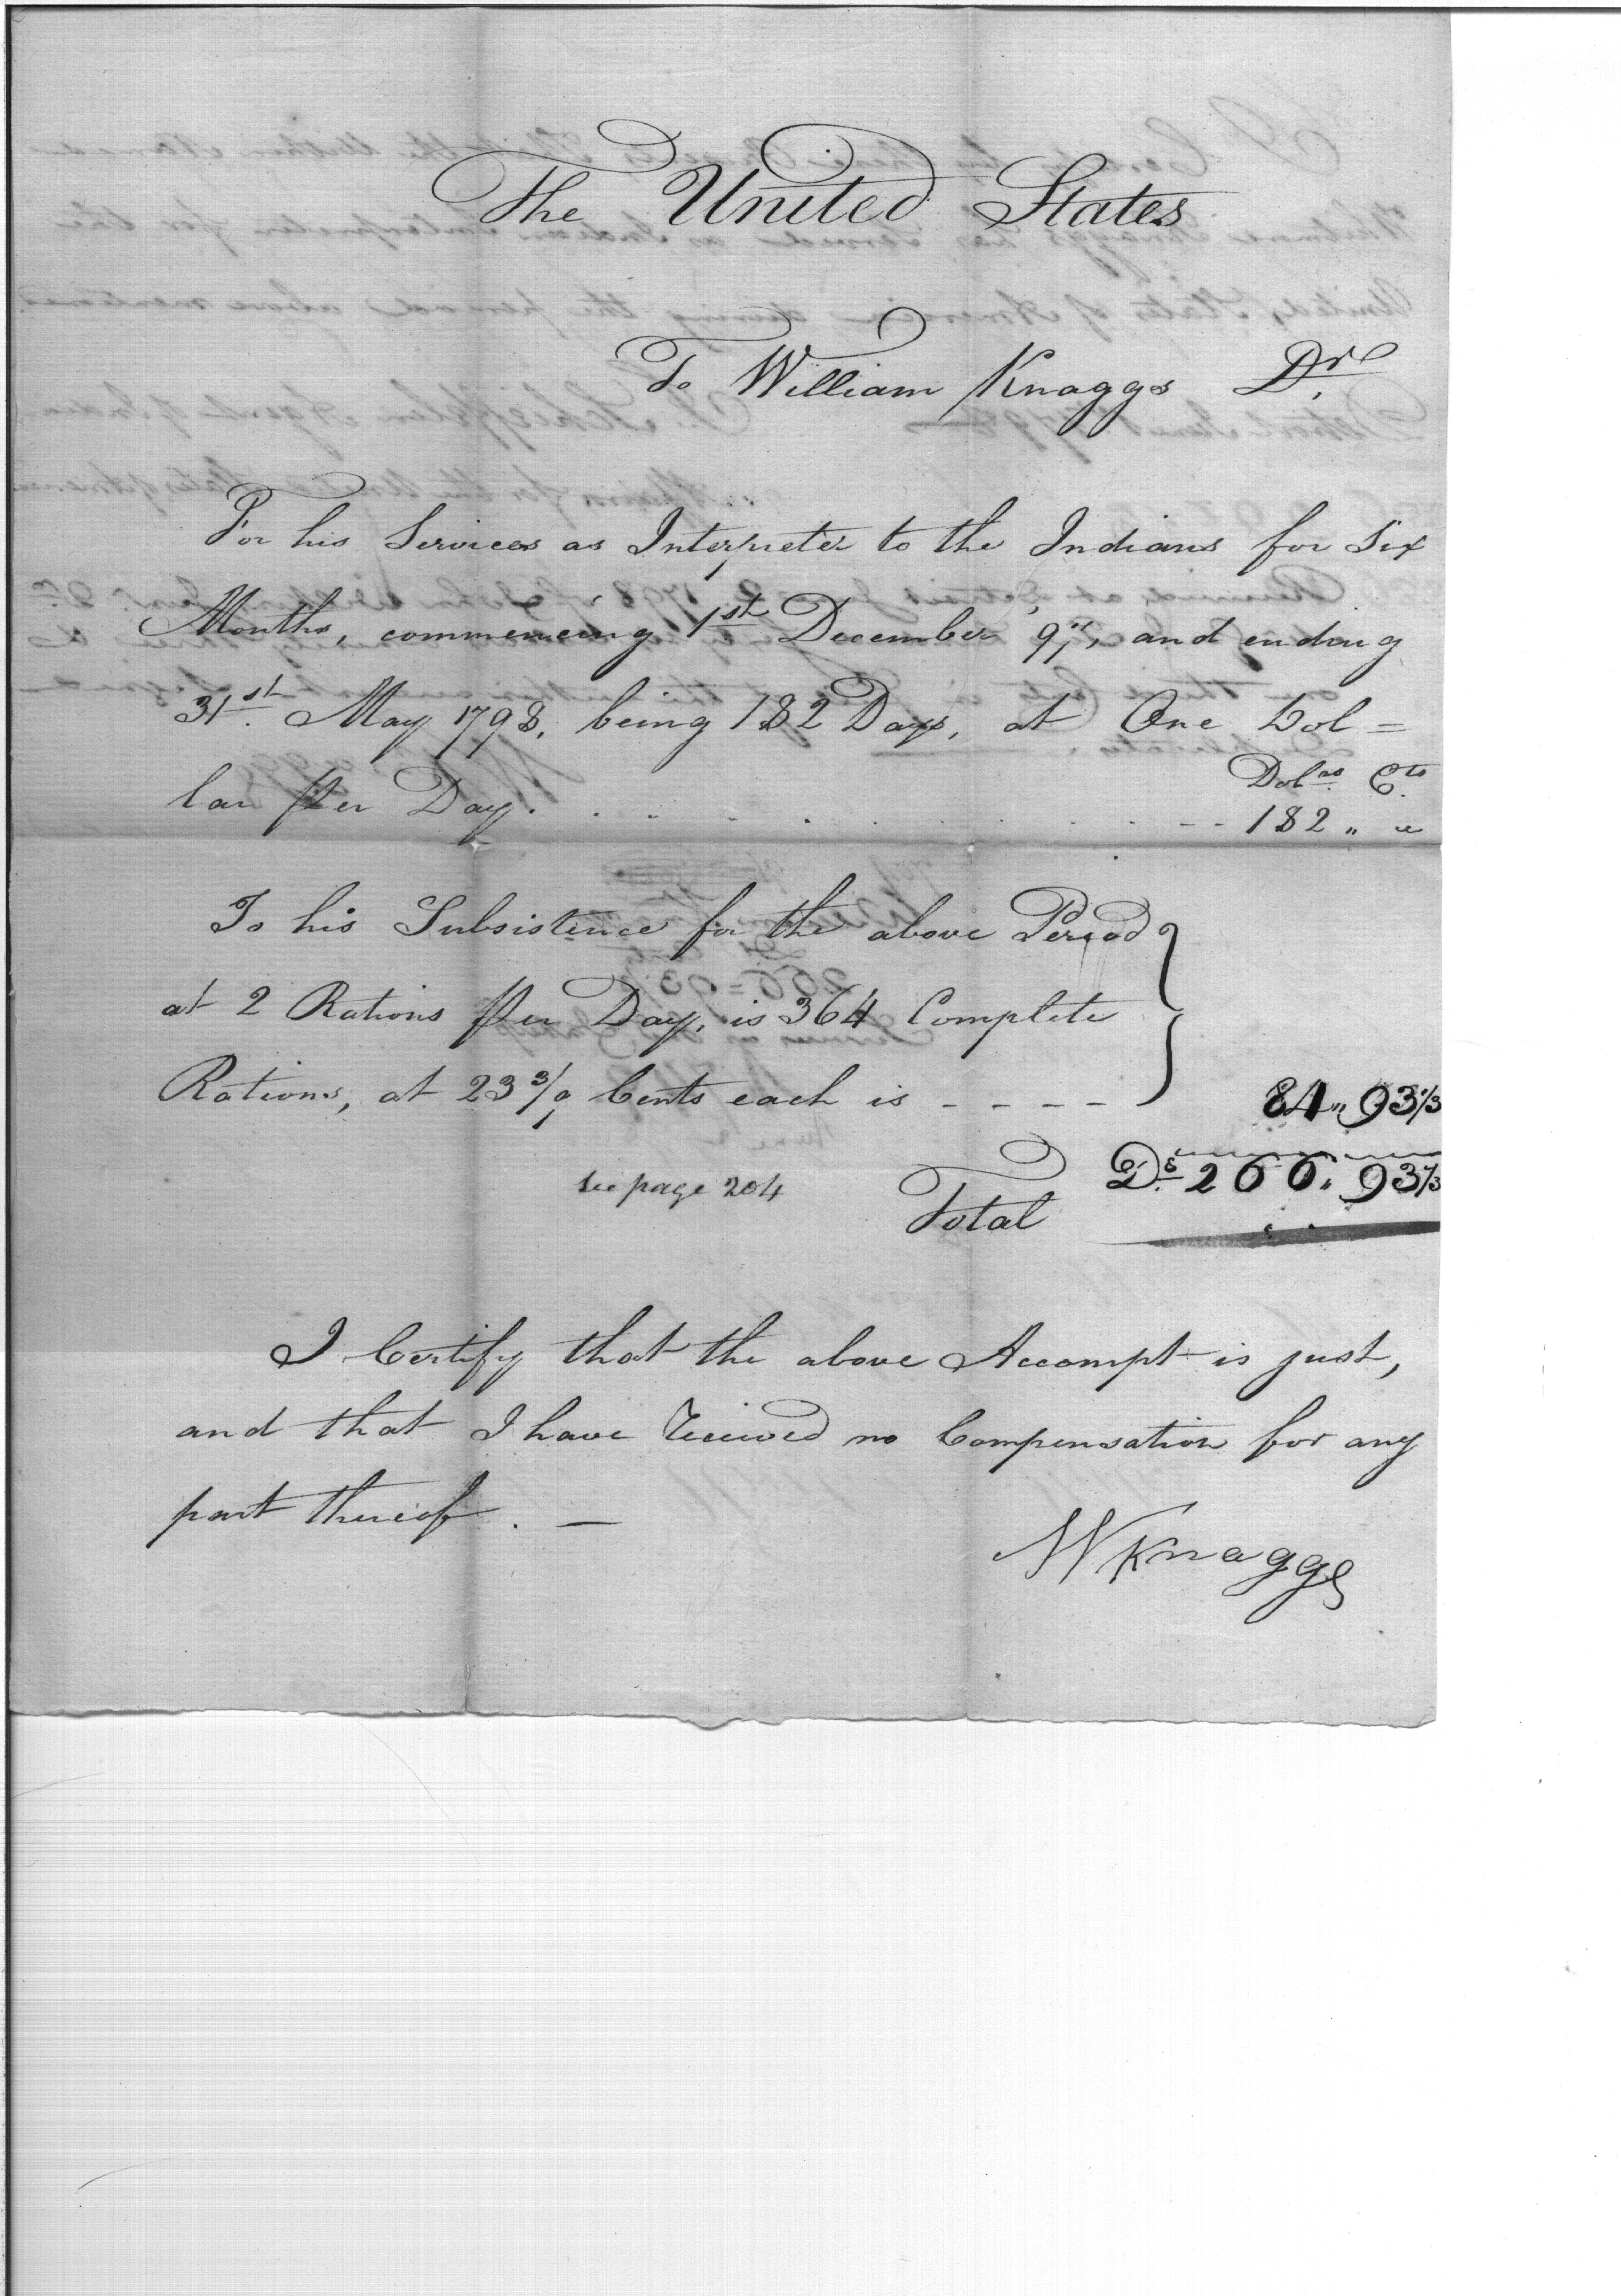 The United States
To William Knaggs Dr.
For his Services as Interpreter to the Indians for Six
Months, commencing 1st December 97, and ending
31st. May 1798, being 182 Days, at One Dol=
Dolrs. Cts.
lar per Day. . . . . . . . . . . -- 182 „ „
To his Subsistence for the above Period
at 2 Rations per Day, is 364 Complete
Rations, at 23 3/9 Cents each is - - - - 84„ 93 1/3
see page 204 Total Ds. 266„ 93 1/3
I Certify that the above Accompt is just,
and that I have Received no Compensation for any
part thereof. —
W Knaggs